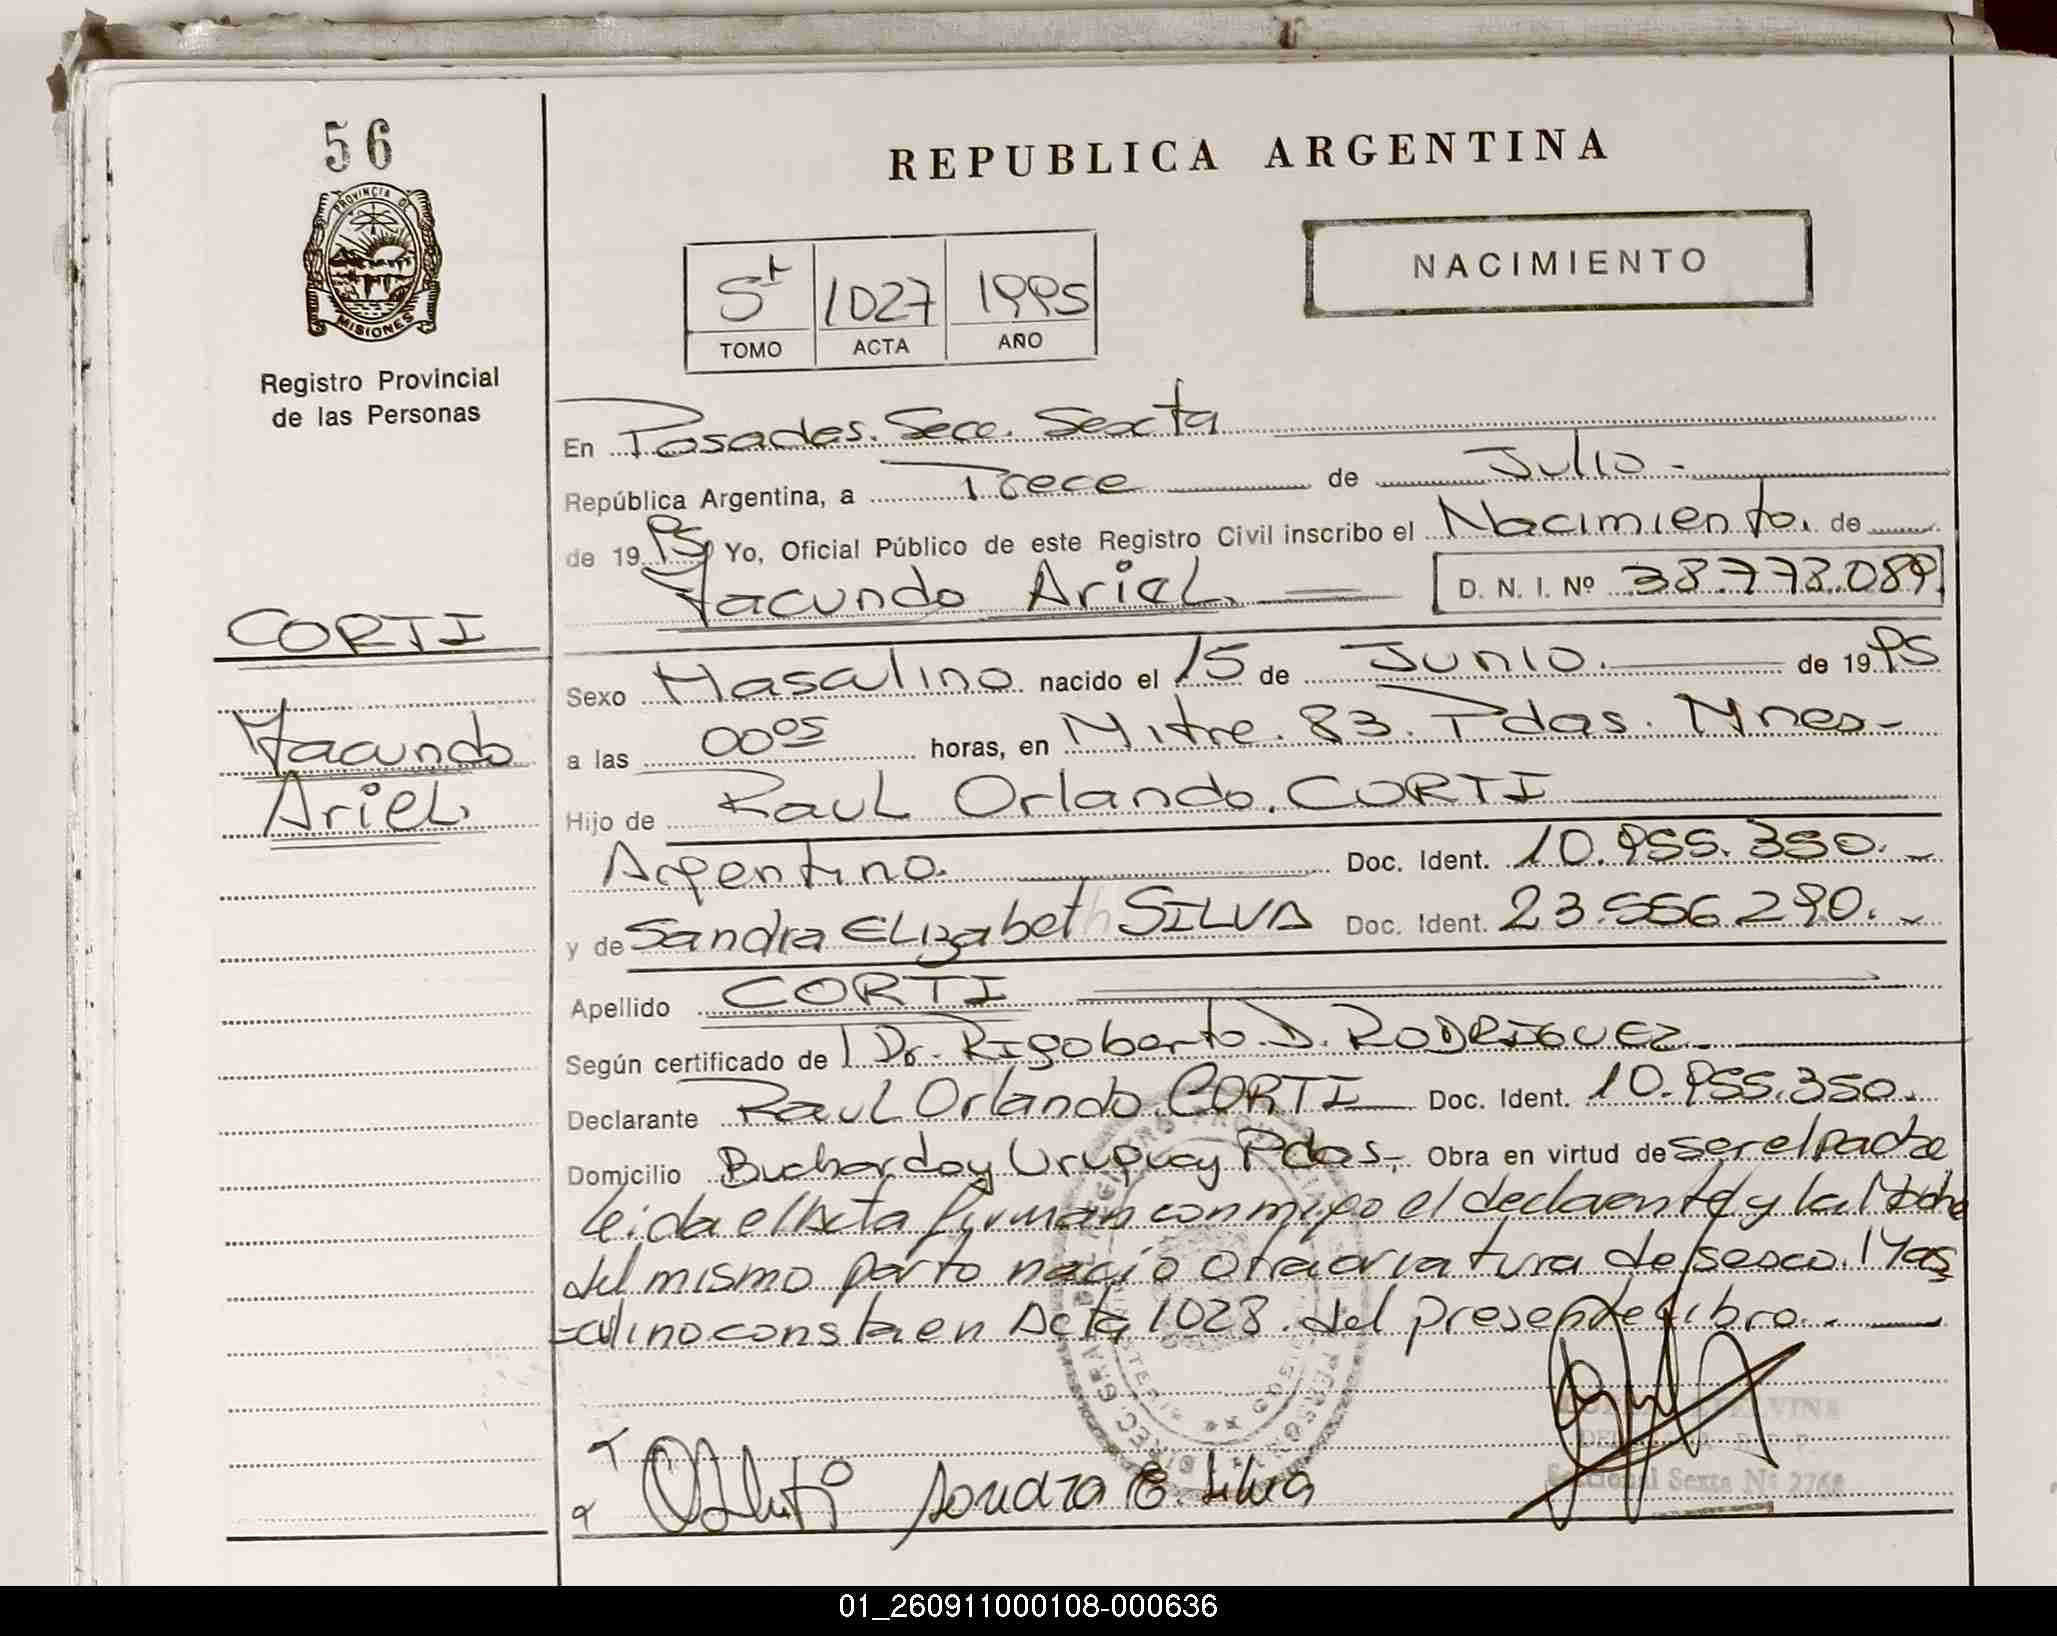 56
PROVINCIA DE
MISIONES
Registro Provincial
de las Personas
CORTI
Facundo
Ariel.
REPUBLICA ARGENTINA
NACIMIENTO
5t 1027 1995
TOMO ACTA AÑO
En Posadas. Secc. Sexta
República Argentina, a Trece de Julio -
de 1995 Yo, Oficial Público de este Registro Civil inscribo el Nacimiento. de
Facundo Ariel. D. N. I. Nº 38.773.089
Sexo Masculino nacido el 15 de Junio. de 1995
a las 00 05 horas, en Mitre. 83. Pdas. Mnes-
Hijo de Raul Orlando. CORTI
Argentino. Doc. Ident. 10.955.350.-
y de Sandra Elizabeth SILVA Doc. Ident. 23.556.290.-
Apellido CORTI
Según certificado de Dr. Rigoberto. D. RODRIGUEZ.
Declarante Raul Orlando CORTI Doc. Ident. 10.955.350.
Domicilio Buchardo y Uruguay Pdas, Obra en virtud de ser el padre
leida el Acta firman conmigo el declarante y la Madre
del mismo parto nació otra criatura de sexo. Mas
=culino consta en Acta 1028. del presente libro.-
Sandra E. Silva
Seccional Sexta Nº 2768
01_260911000108-000636